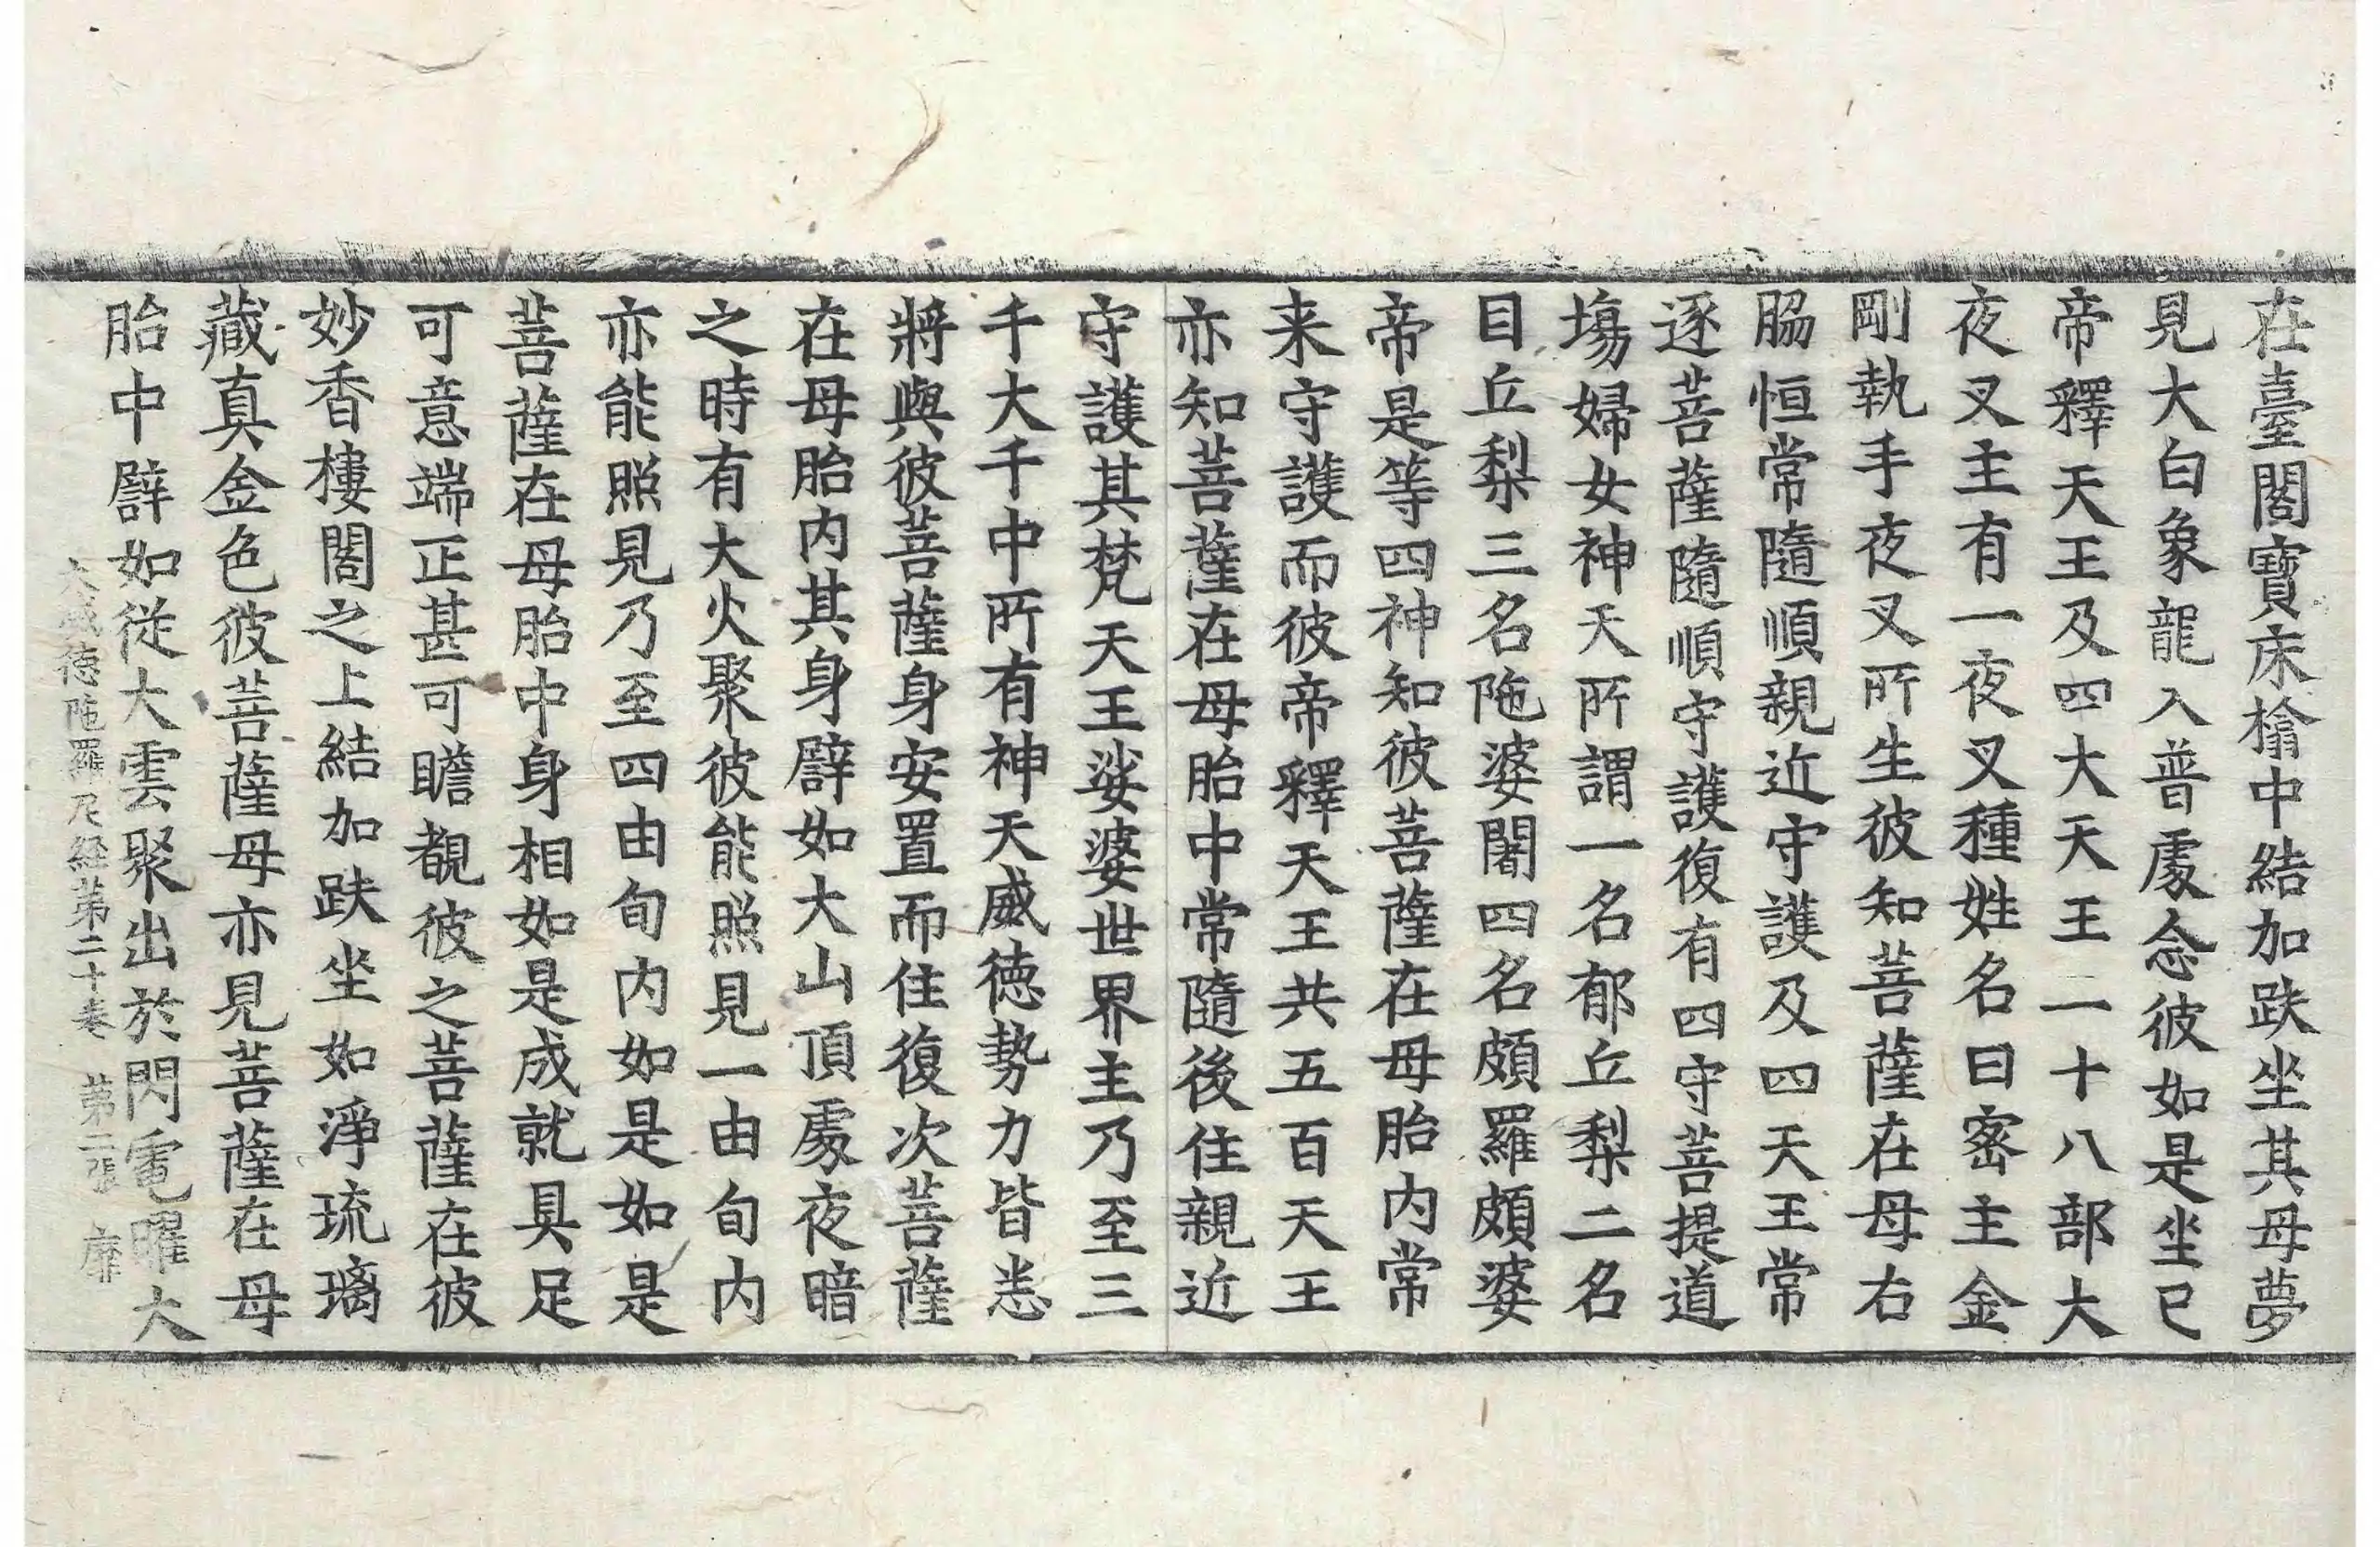 在臺閣寶床楡中結加趺坐其母夢
見大白象龍入普處念彼如是坐已
帝釋天王及四大天王二十八部大
夜叉主有一夜叉種姓名曰密主金
剛執手夜叉所生彼知菩薩在母右
脇恒常隨順親近守護及四天王常
逐菩薩隨順守護復有四守菩提道
場婦女神天所謂一名郁丘梨二名
目丘梨三名陁婆闍四名頗羅頗婆
帝是等四神知彼菩薩在母胎內常
来守護而彼帝釋天王共五百天王
亦知菩薩在母胎中常隨後住親近
守護其梵天王娑婆世界主乃至三
千大千中所有神天威德勢力皆悉
將與彼菩薩身安置而住復次菩薩
在母胎內其身譬如大山頂處夜暗
之時有大火聚彼能照見一由旬內
亦能照見乃至四由旬內如是如是
菩薩在母胎中身相如是成就具足
可意端正甚可瞻覩彼之菩薩在彼
妙香樓閣之上結加趺坐如淨琉璃
藏真金色彼菩薩母亦見菩薩在母
胎中譬如從大雲聚出於閃電曜大
大威德陁羅尼経第二十卷 第二張 靡